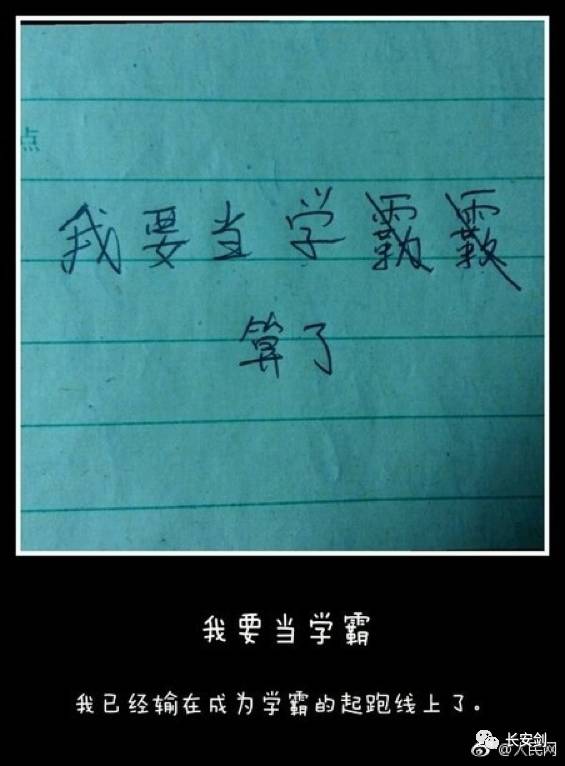 点
我要当学
算了
我要当学霸
我已经输在成为学霸的起跑线上了。
长安剑
@人民网